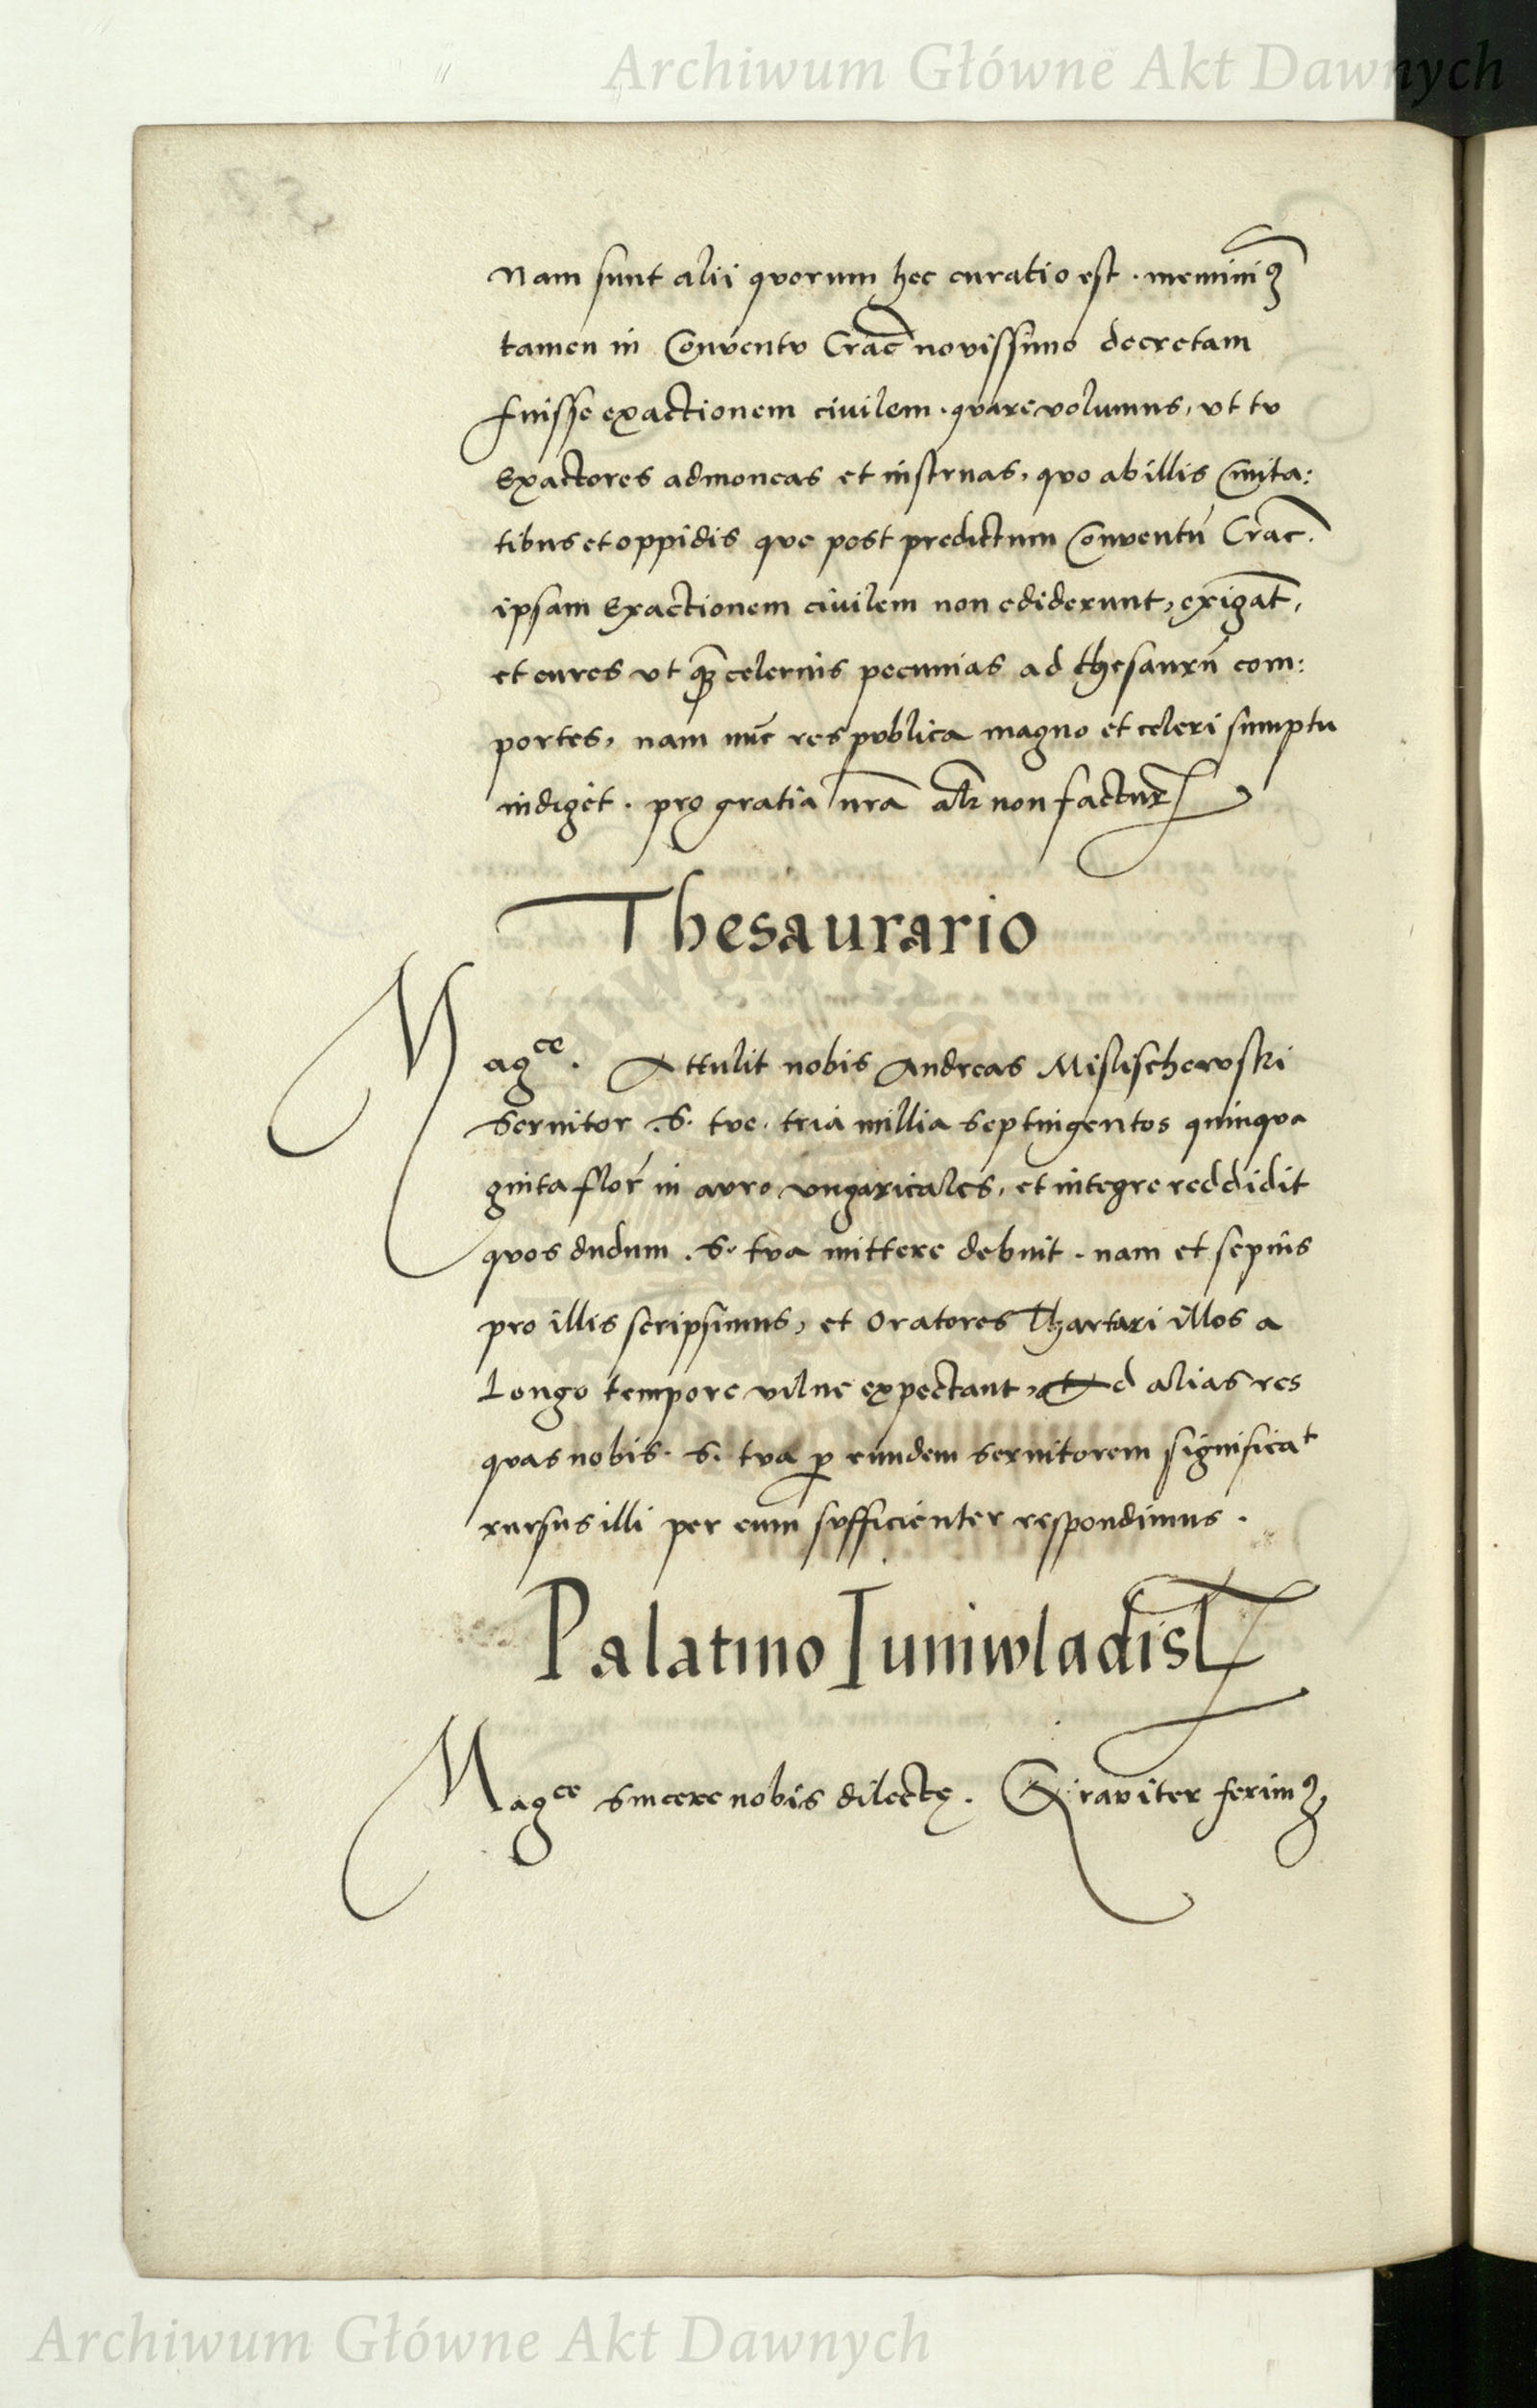 Archiwum Główne Akt Dawnych
Nam sunt alii quorum hec curatio est . meminimꝰ
tamen in Conventu Crac̄ novissimo decretam
fuisse exactionem civilem . quare volumus, ut tu
Exactores admoneas et instruas, quo ab illis Civita:
tibus et oppidis que post predictum Conventū Crac.
ipsam Exactionem civilem non ediderunt, exigāt,
et cures ut q̄ celerius pecunias ad thesaurū com:
portes, nam nūc res publica magno et celeri sumptu
indiget . pro gratia nr̄a alr̄ non factur
Thesaurario
Magce . Attulit nobis Andreas Mislischewski
Servitor . S. tue . tria millia septingentos quinqua
ginta flor̄ in auro ungaricales, et integre reddidit
quos dudum . S. tua mittere debuit . nam et sepius
pro illis scripsimus, et Oratores Thartari illos a
Longo tempore vilne expectant, Ad alias res
quas nobis . S. tua ꝑ eundem servitorem significat
rursus illi per eum sufficienter respondimus .
Palatino Iuniwladisl
Magce sincere nobis dilectę . Graviter ferimꝰ
Archiwum Główne Akt Dawnych